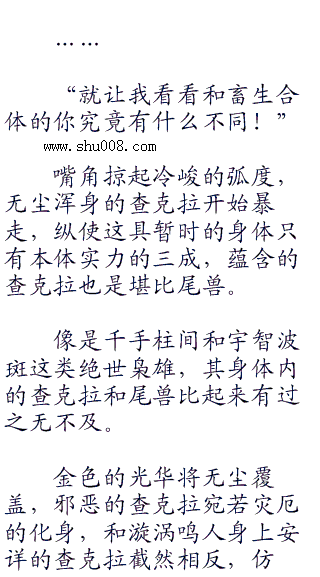 ……
“就让我看看和畜生合
体的你究竟有什么不同！”
www.shu008.com
嘴角掠起冷峻的弧度，
无尘浑身的查克拉开始暴
走，纵使这具暂时的身体只
有本体实力的三成，蕴含的
查克拉也是堪比尾兽。
像是千手柱间和宇智波
斑这类绝世枭雄，其身体内
的查克拉和尾兽比起来有过
之无不及。
金色的光华将无尘覆
盖，邪恶的查克拉宛若灾厄
的化身，和漩涡鸣人身上安
详的查克拉截然相反，仿